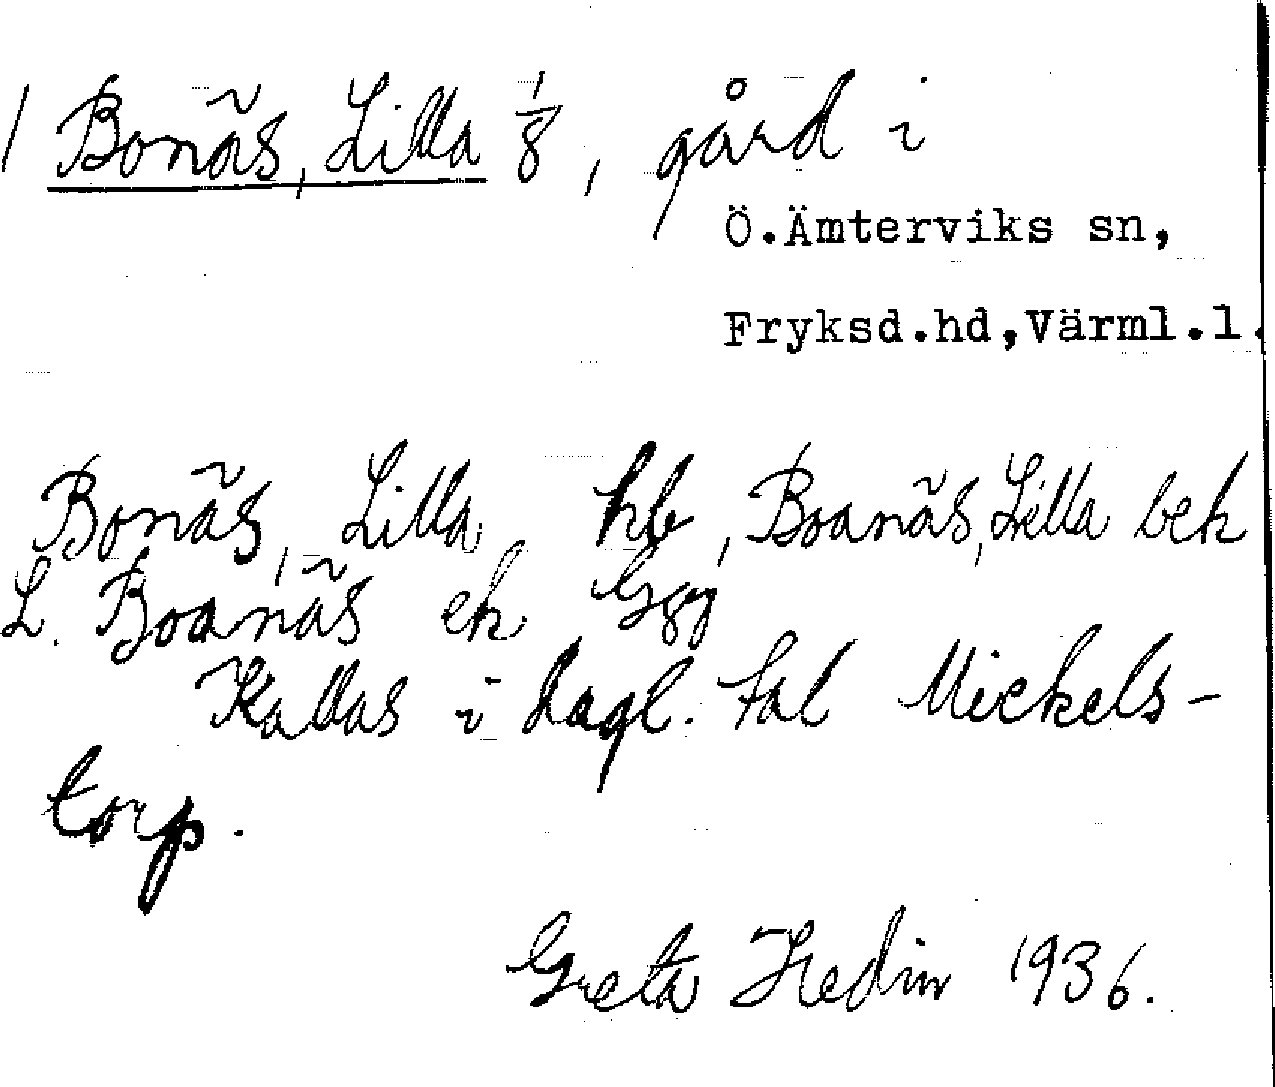 1 Bonäs, Lilla 1/8, gård i
Ö.Ämterviks sn,
Fryksd.hd,Värml.l.
Bonäs, Lilla hb, Boanäs, Lilla bek
L. Boanäs ek Ggy
Kallas i dagl. tal Mickels-
torp.
Greta Hedin 1936.